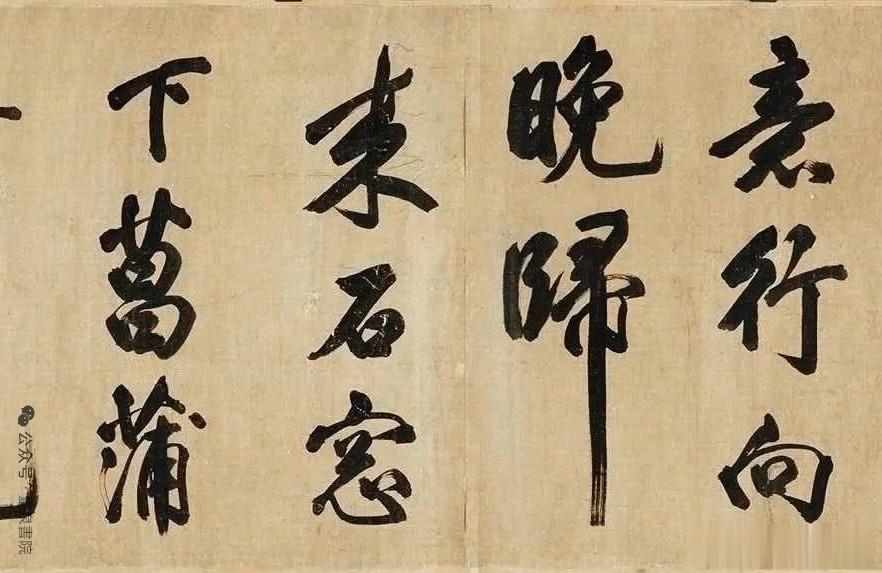 意行向
晚歸
来石窓
下菖蒲
公众号
書院